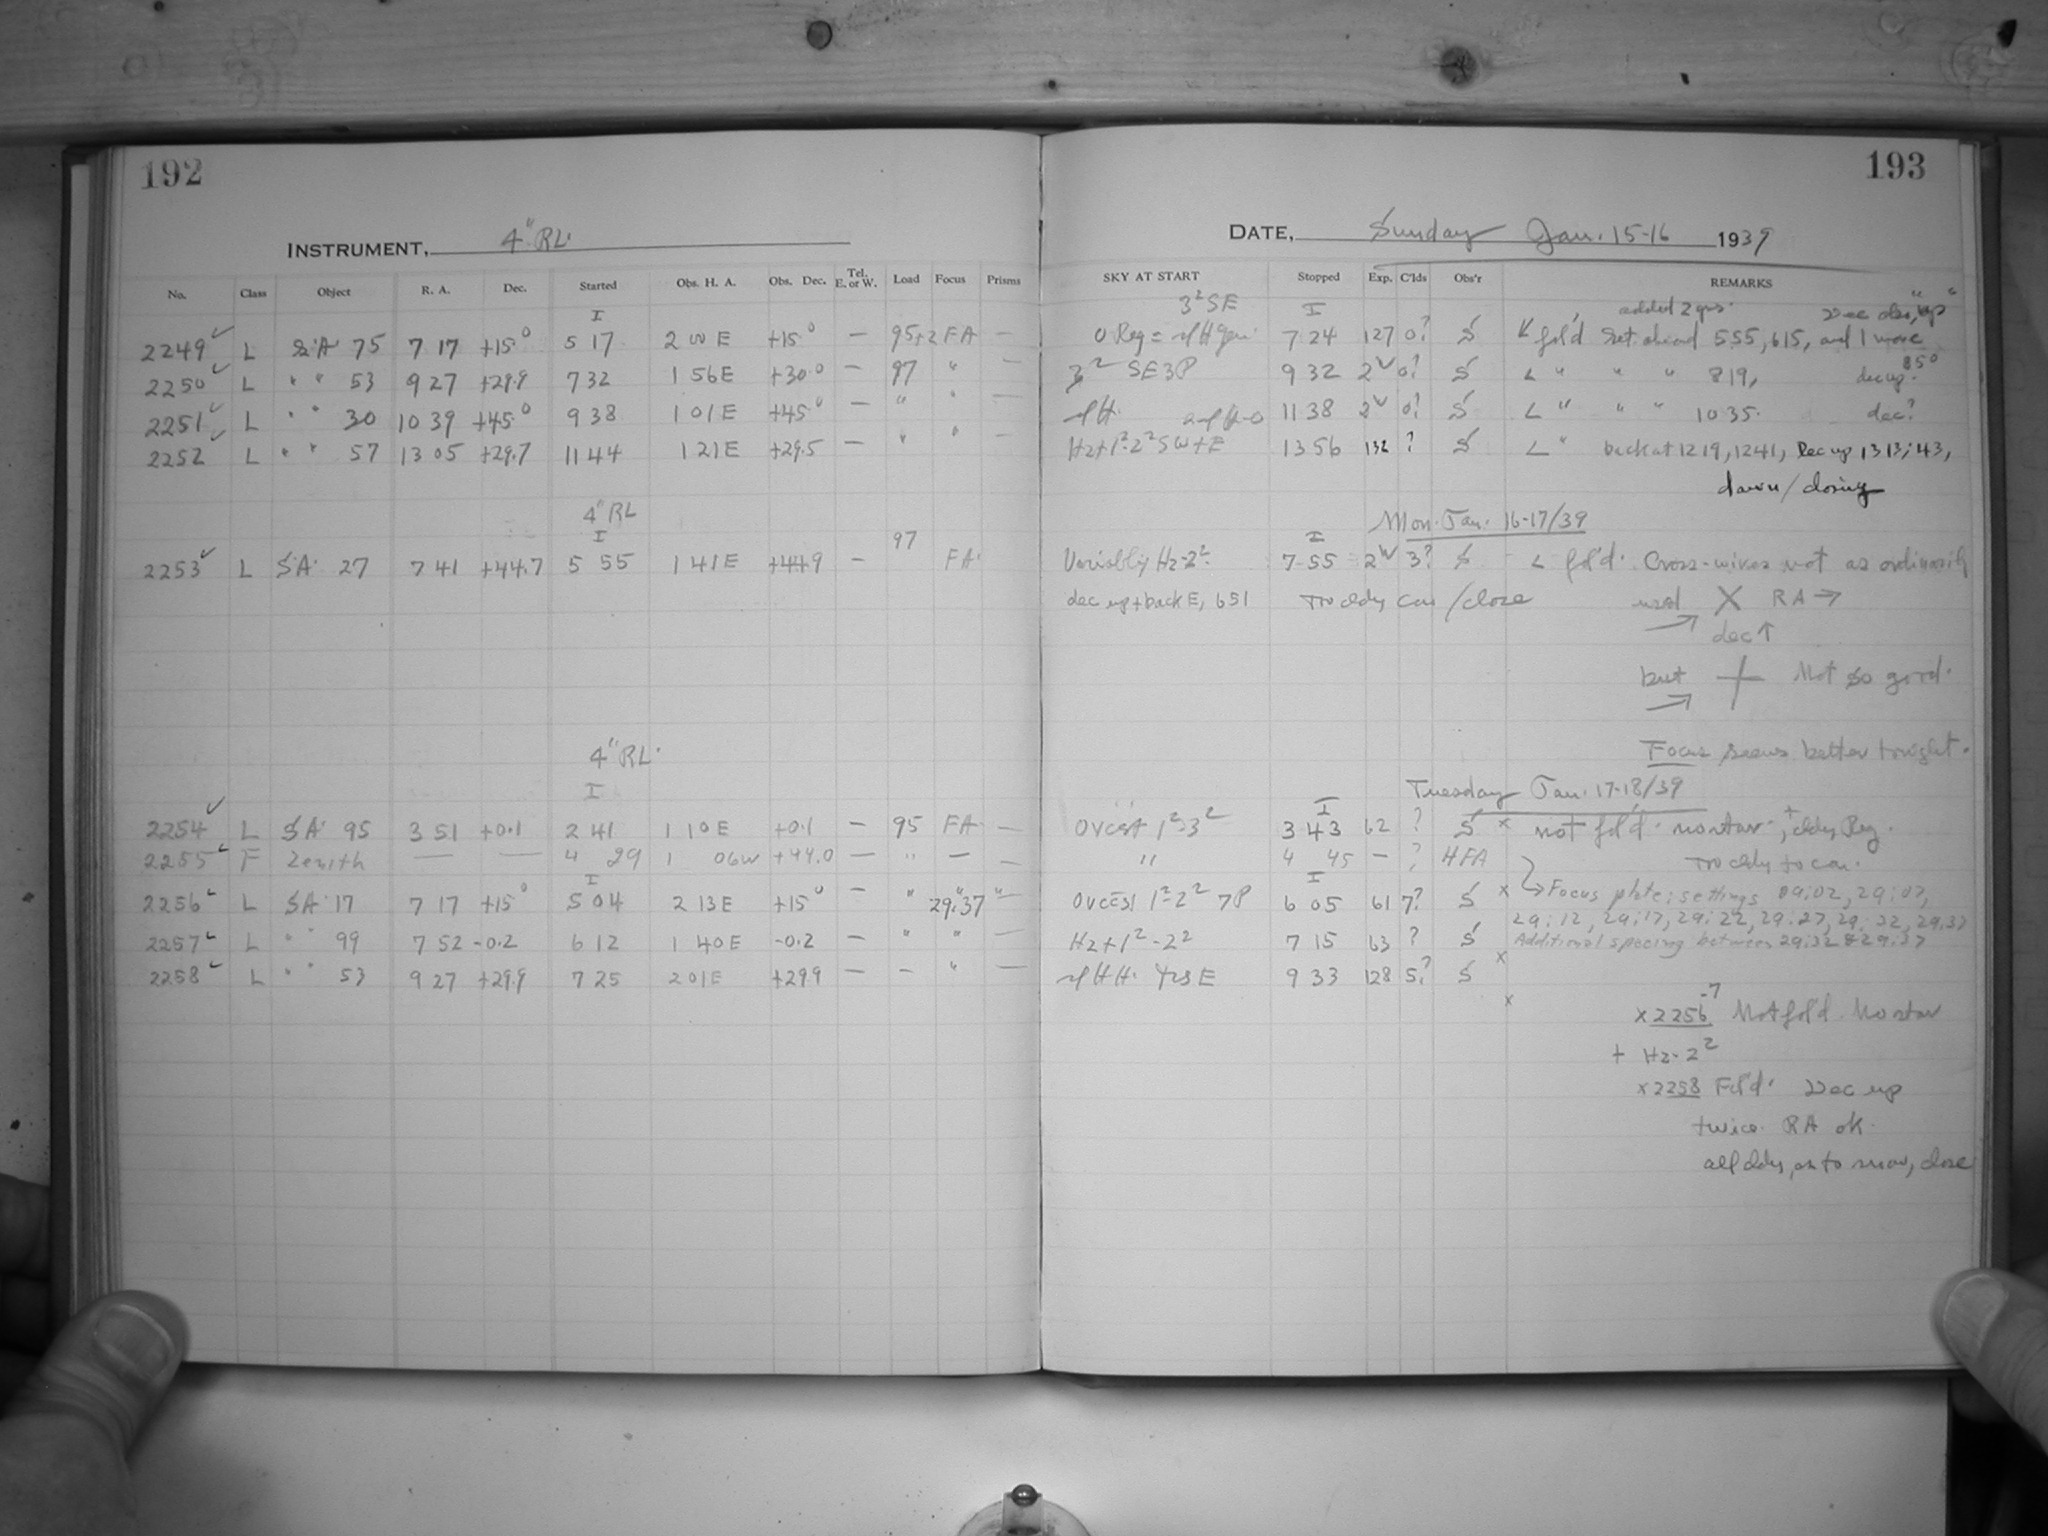 192
INSTRUMENT, 4" RL.
No. Class Object R. A. Dec. Started Obs. H. A. Obs. Dec. Tel. E. or W. Load Focus Prisms
I
2249 ✓ L SA 75 7 17 +15° 5 17 2 W E +15° — 95+2 FA —
2250 ✓ L " " 53 9 27 +29.9 7 32 1 56 E +30.0 — 97 " —
2251 ✓ L " " 30 10 39 +45° 9 38 1 01 E +45° — " " —
2252 ✓ L " " 57 13 05 +29.7 11 44 1 21 E +29.5 — " " —
4" RL
I
97
2253 ✓ L SA 27 7 41 +44.7 5 55 1 41 E +44.9 — FA
4" RL.
I
2254 ✓ L SA 95 3 51 +0.1 2 41 1 10 E +0.1 — 95 FA —
2255 ✓ F Zenith — — 4 29 1 06 W +44.0 — " — —
I
2256 ✓ L SA 17 7 17 +15° 5 04 2 13 E +15° — " 29:37 —
2257 ✓ L " " 99 7 52 -0.2 6 12 1 40 E -0.2 — " " —
2258 ✓ L " " 53 9 27 +29.9 7 25 2 01 E +29.9 — — " —
193
DATE, Sunday Jan. 15-16 1939
SKY AT START Stopped Exp. C'lds Obs'r REMARKS
3² SE I added 2 Dec also "up"
0 Reg = 7 24 127 0? S fol'd Set ahead 5 55, 6 15, and 1 more
3² SE 3P 9 32 2 W 0? S " " " 8 19, dec up .85°
11 38 2 W 0? S " " " 10 35. dec?
Hz+1²-2² SW+E 13 56 132 ? S " back at 12 19, 12 41, Dec up 13 13; 43,
dawn / closing
Mon. Jan. 16-17/39
I
Variably Hz-2² 7 55 2 W 3? S fol'd. Cross-wires not as ordinarily
dec up + back E, 6 51 Too cldy con / close used X RA →
dec ↑
but + Not so good.
Focus seems better tonight.
Tuesday Jan. 17-18/39
I
Ovcst 1²-3² 3 43 62 ? S x not fol'd. no star, + cldy Reg.
" 4 45 — ? HFA Too cldy to con.
I
Ovcst 1²-2² 7P 6 05 61 7? S x Focus plate; settings 09:02, 29:07,
29:12, 29:17, 29:22, 29:27, 29:32, 29:37
Hz+1²-2² 7 15 63 ? S Additional spacing between 29:32 & 29:37
E 9 33 128 5? S x
x
x 2256-7 Not fol'd. No star
+ Hz-2²
x 2258 Fol'd. Dec up
twice. RA ok.
all cldy, on to snow, close